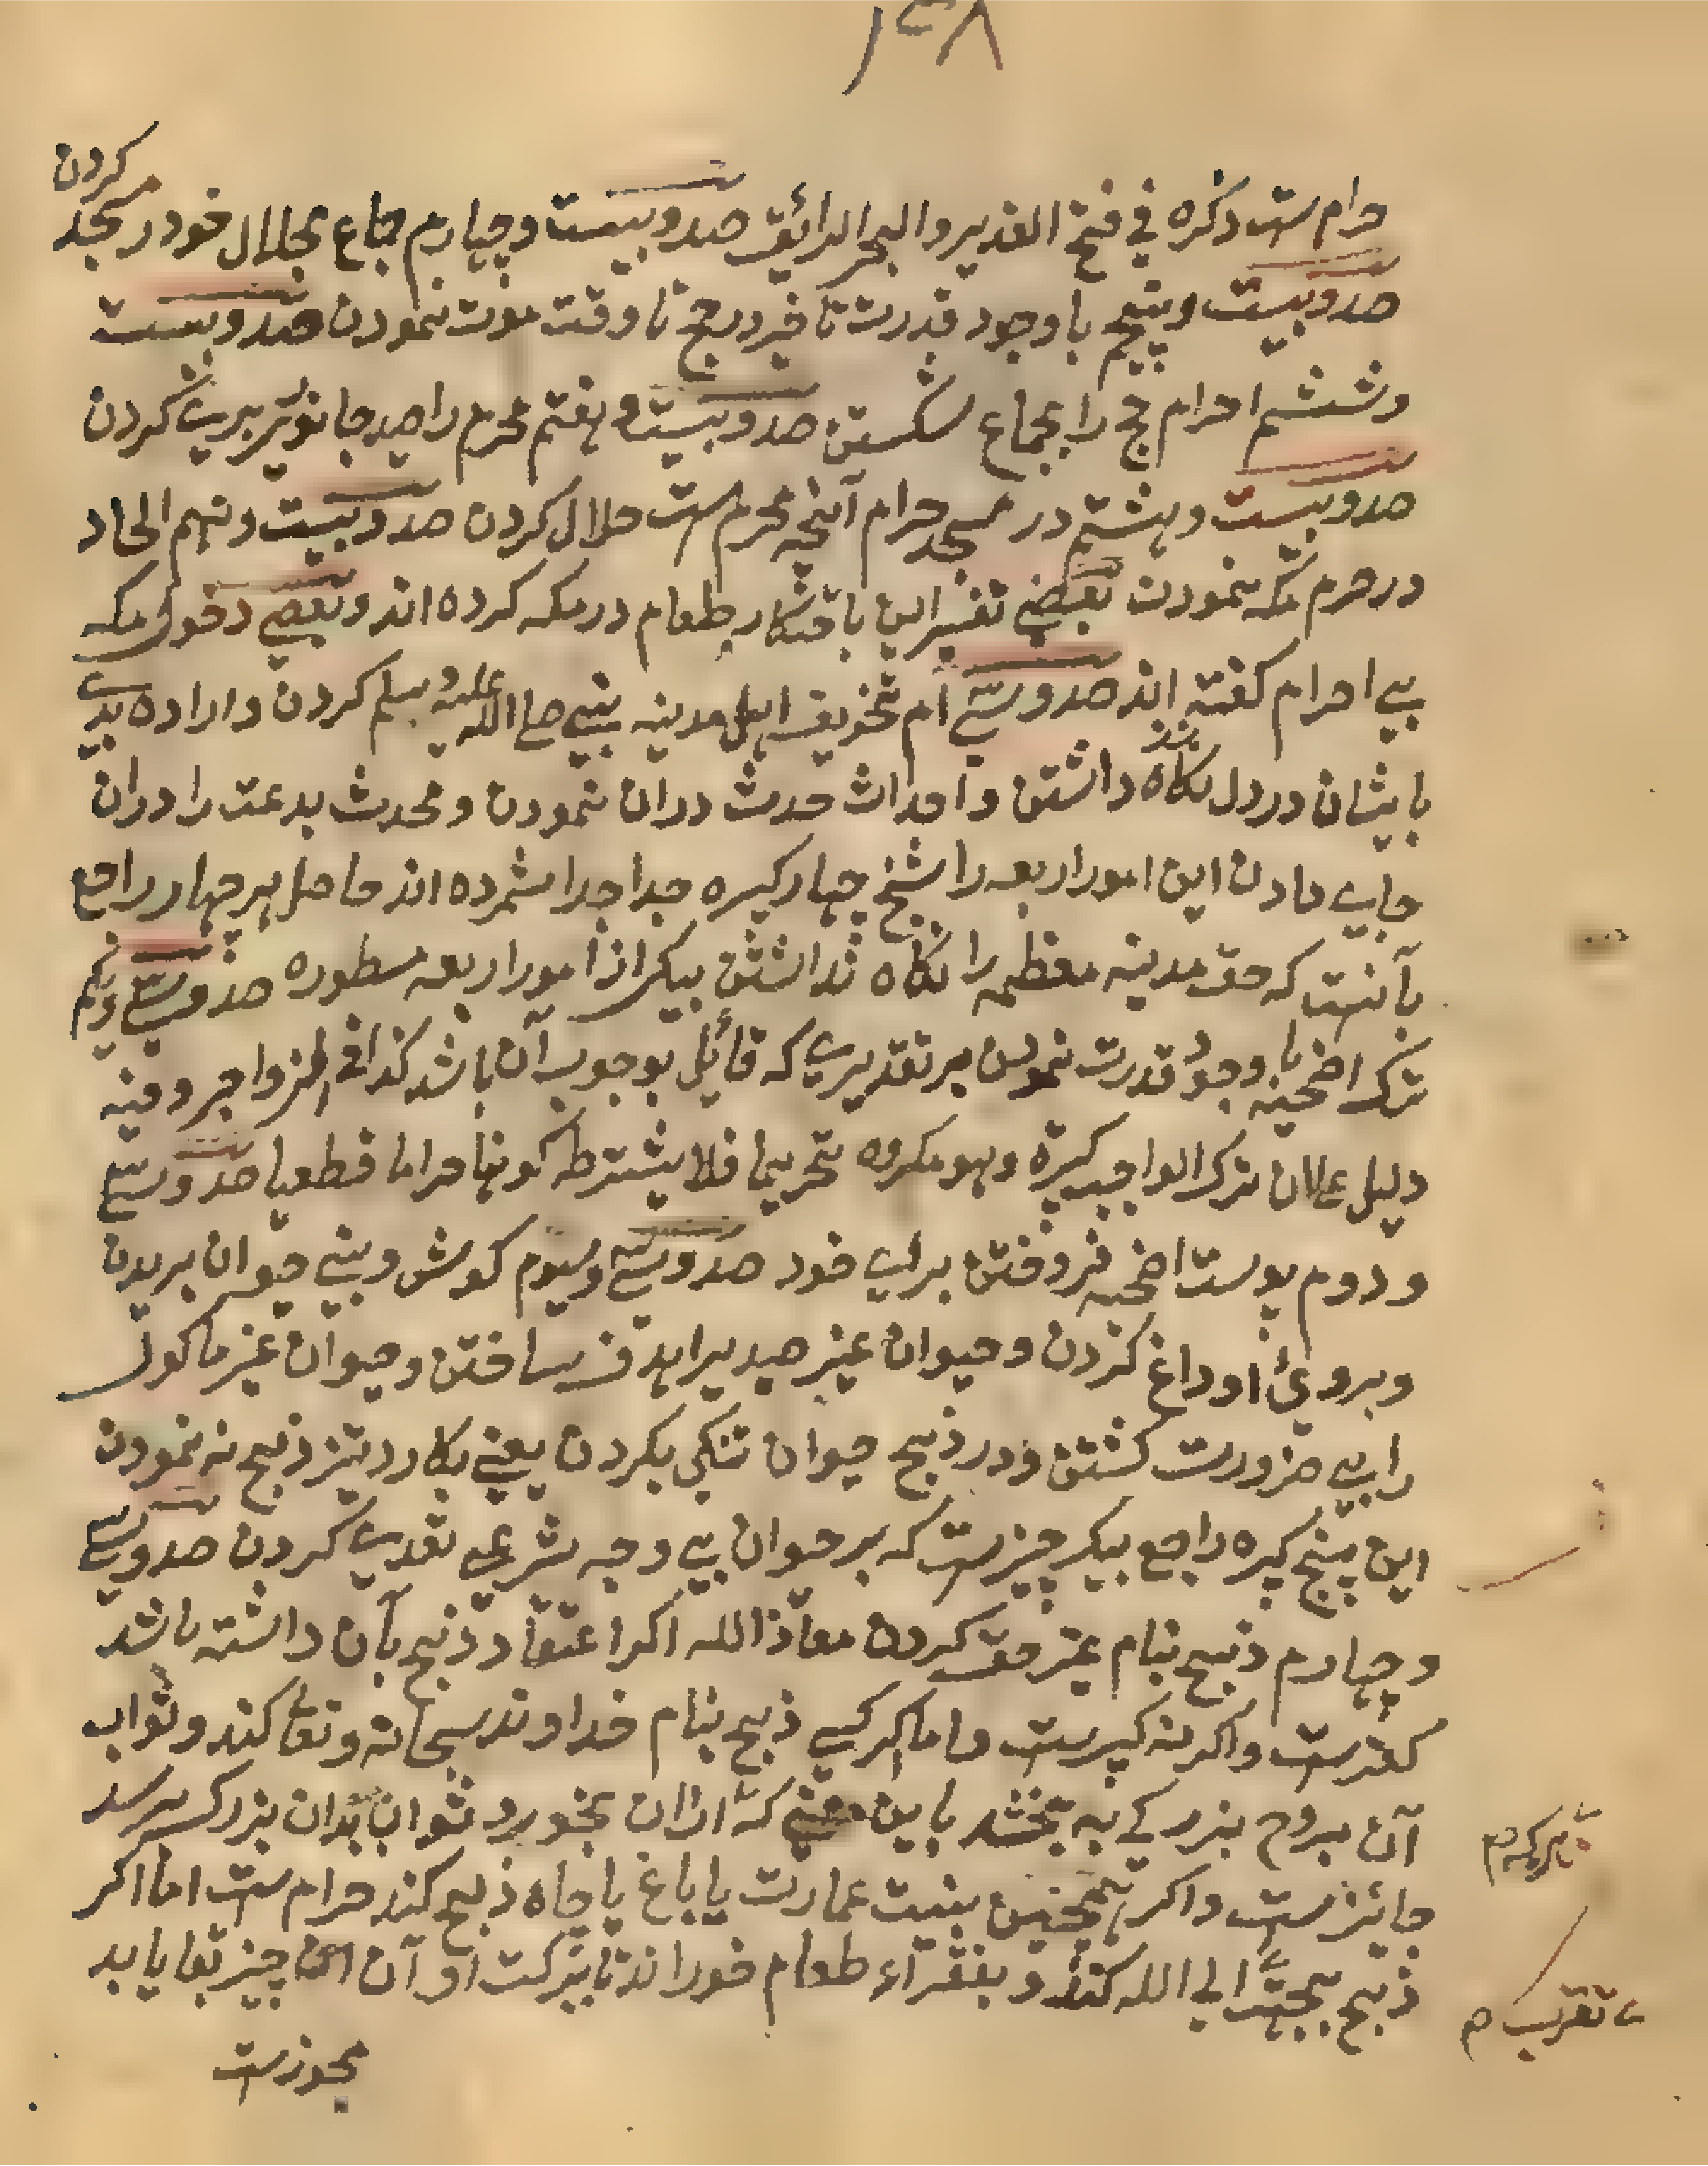 ۱۳۸
حرام ست ذکره فی فتح القدیر والبحر الرائق صد و بیست و چهارم جماع بحلال خود در مسجد کردن
صد و بیست و پنجم با وجود قدرت تاخیر در حج تا وقت موت نمودن صد و بیست
و ششم احرام حج را بجماع شکستن صد و بیست و هفتم محرم را صید جانور بری کردن
صد و بیست و هشتم در مسجد حرام آنچه محرم ست حلال کردن صد و بیست و نهم الحاد
در حرم مکه نمودن بعضے تفسیر این باحتکار طعام در مکه کرده اند و بعضے دخول مکه
بے احرام کفته اند صد و سی ام تخویف اهل مدینه نبی صلی الله علیه و سلم کردن و اراده بدی
بایشان در دل نکاه داشتن و احداث حدث دران نمودن و محدث بدعت را دران
جاے دادن این امور اربعه را شیخ چهار کبیره جدا جدا شمرده اند حاصل هر چهار راجع
بآنست که حق مدینه معظمه را نکاه نداشتن بیکے از امور اربعه مسطوره صد و سی و یکم
ترک اضحیه با وجود قدرت نمودن بر تقدیرے که قائل بوجوب آن باشد کذا فی الزواجر و فیه
دلیل علی ان ترک الواجب کبیرة و هو مکروه تحریما فلا یشترط کونها حراما قطعیا صد و سی
و دوم پوست اضحیه فروختن براے خود صد و سی و سیوم کوش و بینی حیوان بریدن
و بروئ او داغ کردن و حیوان غیر صید را هدف ساختن و حیوان غیر ماکول
را بے ضرورت کشتن و در ذبح حیوان نیکی نکردن یعنی بکارد تیز ذبح نه نمودن
این پنج کبیره راجع بیک چیزست که بر حیوان بے وجه شرعی تعدی کردن صد و سی
و چهارم ذبح بنام غیر حق کردن معاذ الله اکر اعتقاد ذبح بآن داشته باشد
کفرست و اکر نه کبیرست و اما اکر کسے ذبح بنام خداوند سبحانه و تعالی کند و ثواب
آن بروح بزرکے به بخشد باین معنی که هر که ازان بخورد ثواب بدان بزرک برسد
جائز ست و اکر همچنین بنیت عمارت یا باغ یا چاه ذبح کند حرام ست اما اکر
ذبح بجهت تقرب الی الله کند و بفقرآء طعام خوراند تا ببرکت او آن چیز بقا یابد
مجوزست